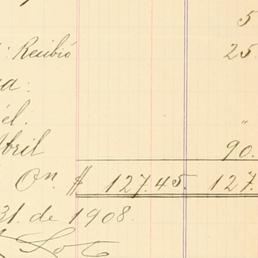 5
: Recibió 25.
a:
él.
Abril 90.
On. $ 127.45. 127.
31. de 1908.
Soto